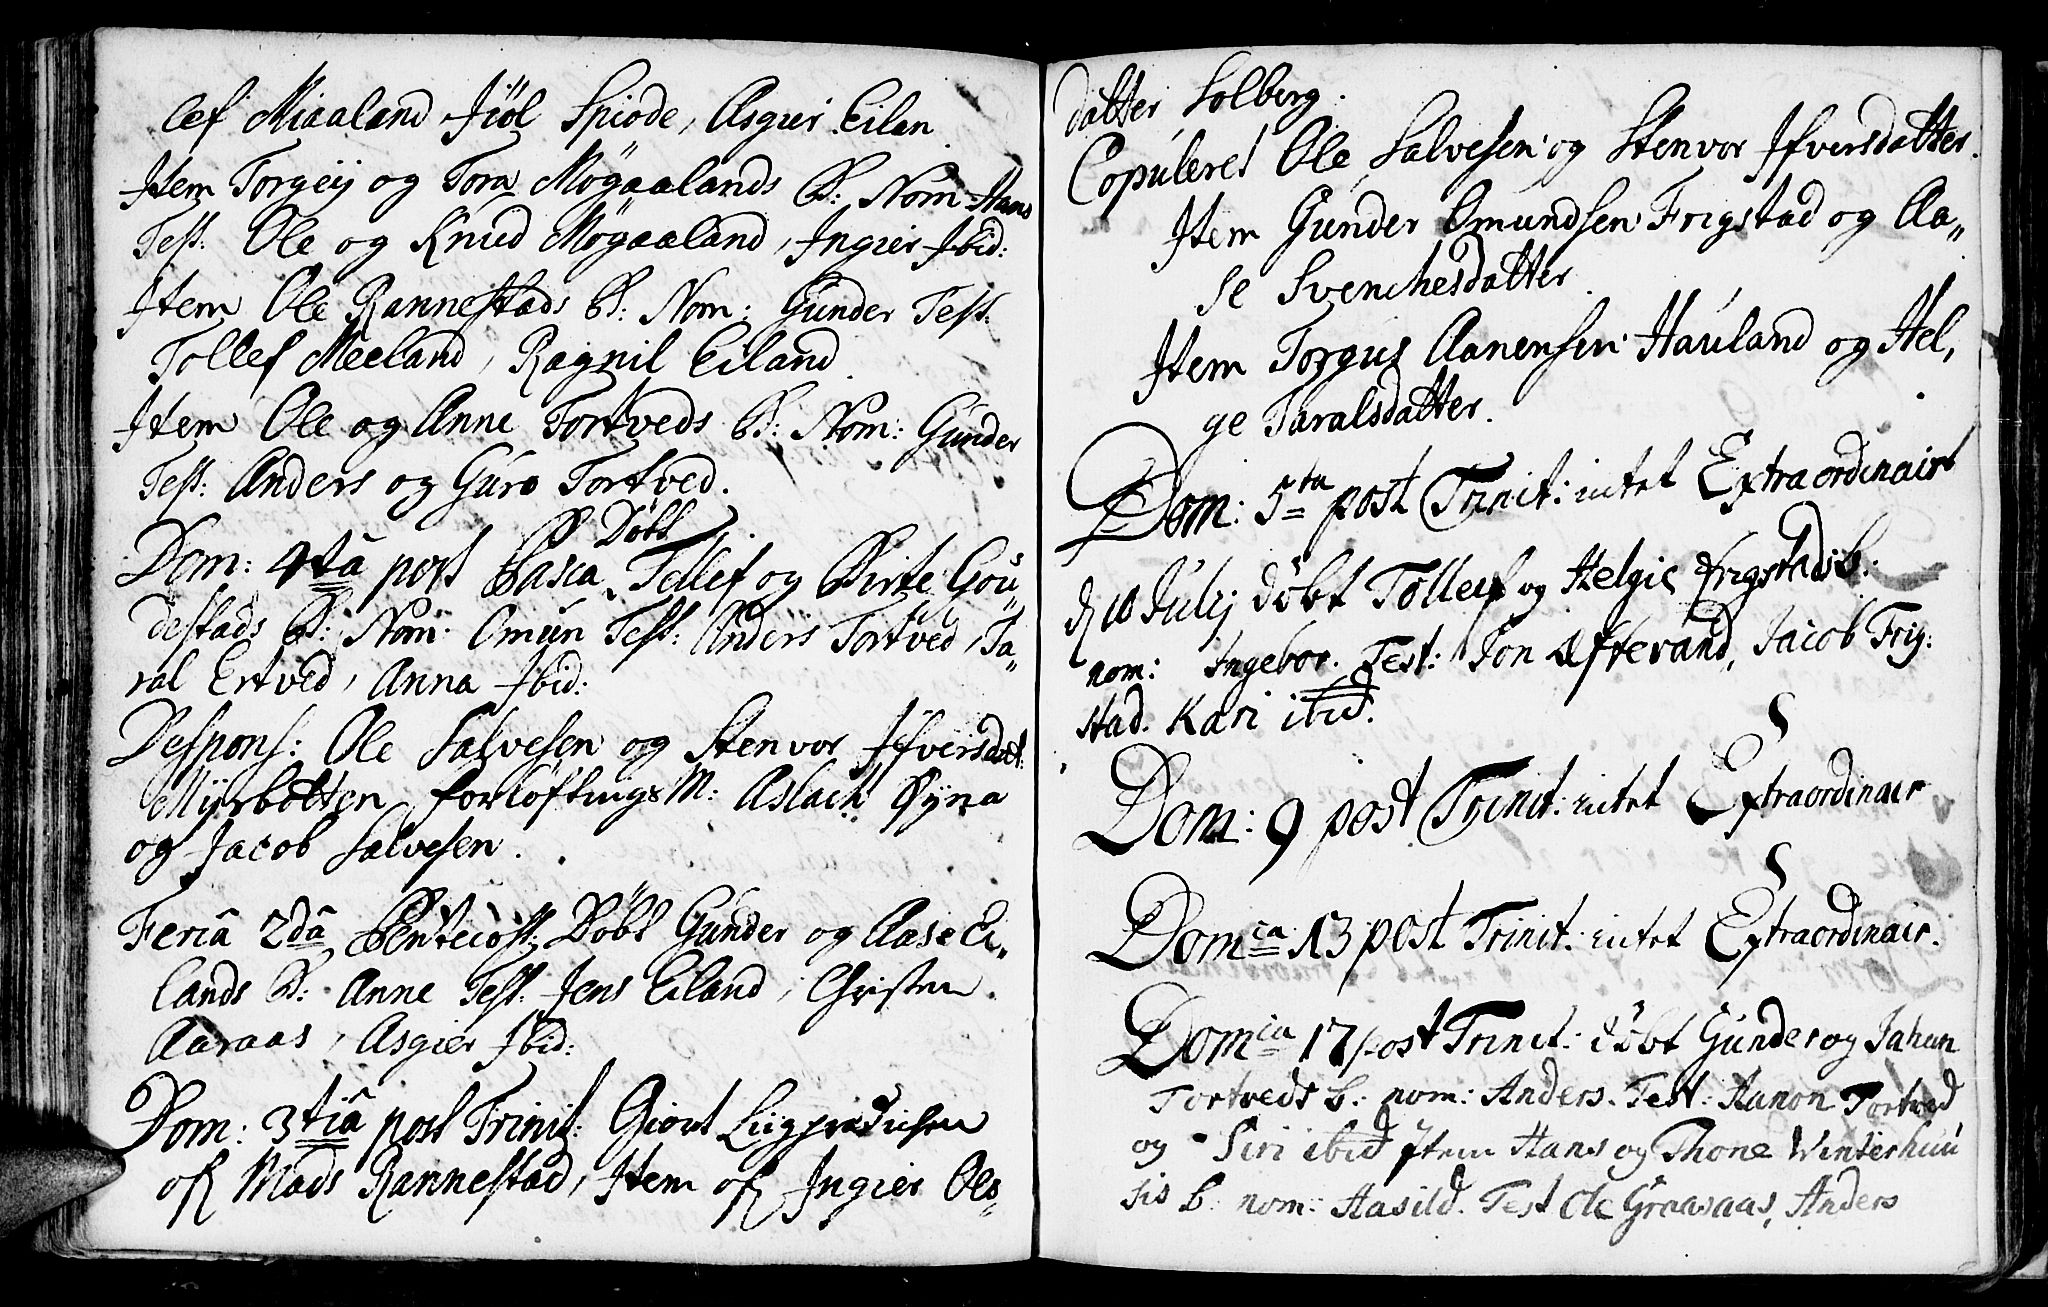 lef Miaaland Jiöl Spiode, Asgier Eilan
Item Torgeij og Tora Mögaalands B: Nom Hans
Test: Ole og Knud Mögaaland, Ingier Ibid:
Item Ole Rannestads B: Nom: Gunder Test:
Tollef Meeland, Ragnil Eiland
Item Ole og Anne Tortveds B: Nom: Gunder
Test: Anders og Guro Tortved.
Döbt
Dom: 4tâ post Pasca, Tellef og Birte Gou
destads B: Nom: Omun Test: Anders Tortved, Ta„
ral Ertved, Anna Ibid:
Despons: Ole Salvesen og Stenvor Ifversdat:
Mijrbotten forlöftings M: Aslach Øyna
og Jacob Salvesen.
Feria 2dâ Pentecost: Döbt Gunder og Aase Ei„
lands B: Anne Test: Jens Eiland, Christen
Aaraas, Asgier Ibid:
Dom: 3tiâ post Trinit: Giort
of Mads Rannestad, Item of Ingier Ols„
datter Solberg.
Copuleret Ole Salvesen og Stenvor Ifversdatter.
Item Gunder Omundsen Frigstad og Aa„
se Svenchesdatter.
Item Torgus Aanensen Hauland og Hel,
ge Taralsdatter.
Dom: 5ta post Trinit: intet Extraordinairt
d 10 Julij döbt Tollef og Helgie Frigstads b.
nom: Ingebor. Test: Jon Øftevand, Jacob Frig:
stad. Kari ibid.
Dom: 9 post Trinit: intet Extraordinair
Domca 13 post Trinit: intet Extraordinair.
Domca 17 post Trinit: döbt Gunder og Jahan
Tortveds b: nom: Anders. Test: Aanon Tortved
og Siri ibid Item Hans og Thone Winterhuu
sis b. nom: Aasild. Test Ole Graasaas, Anders